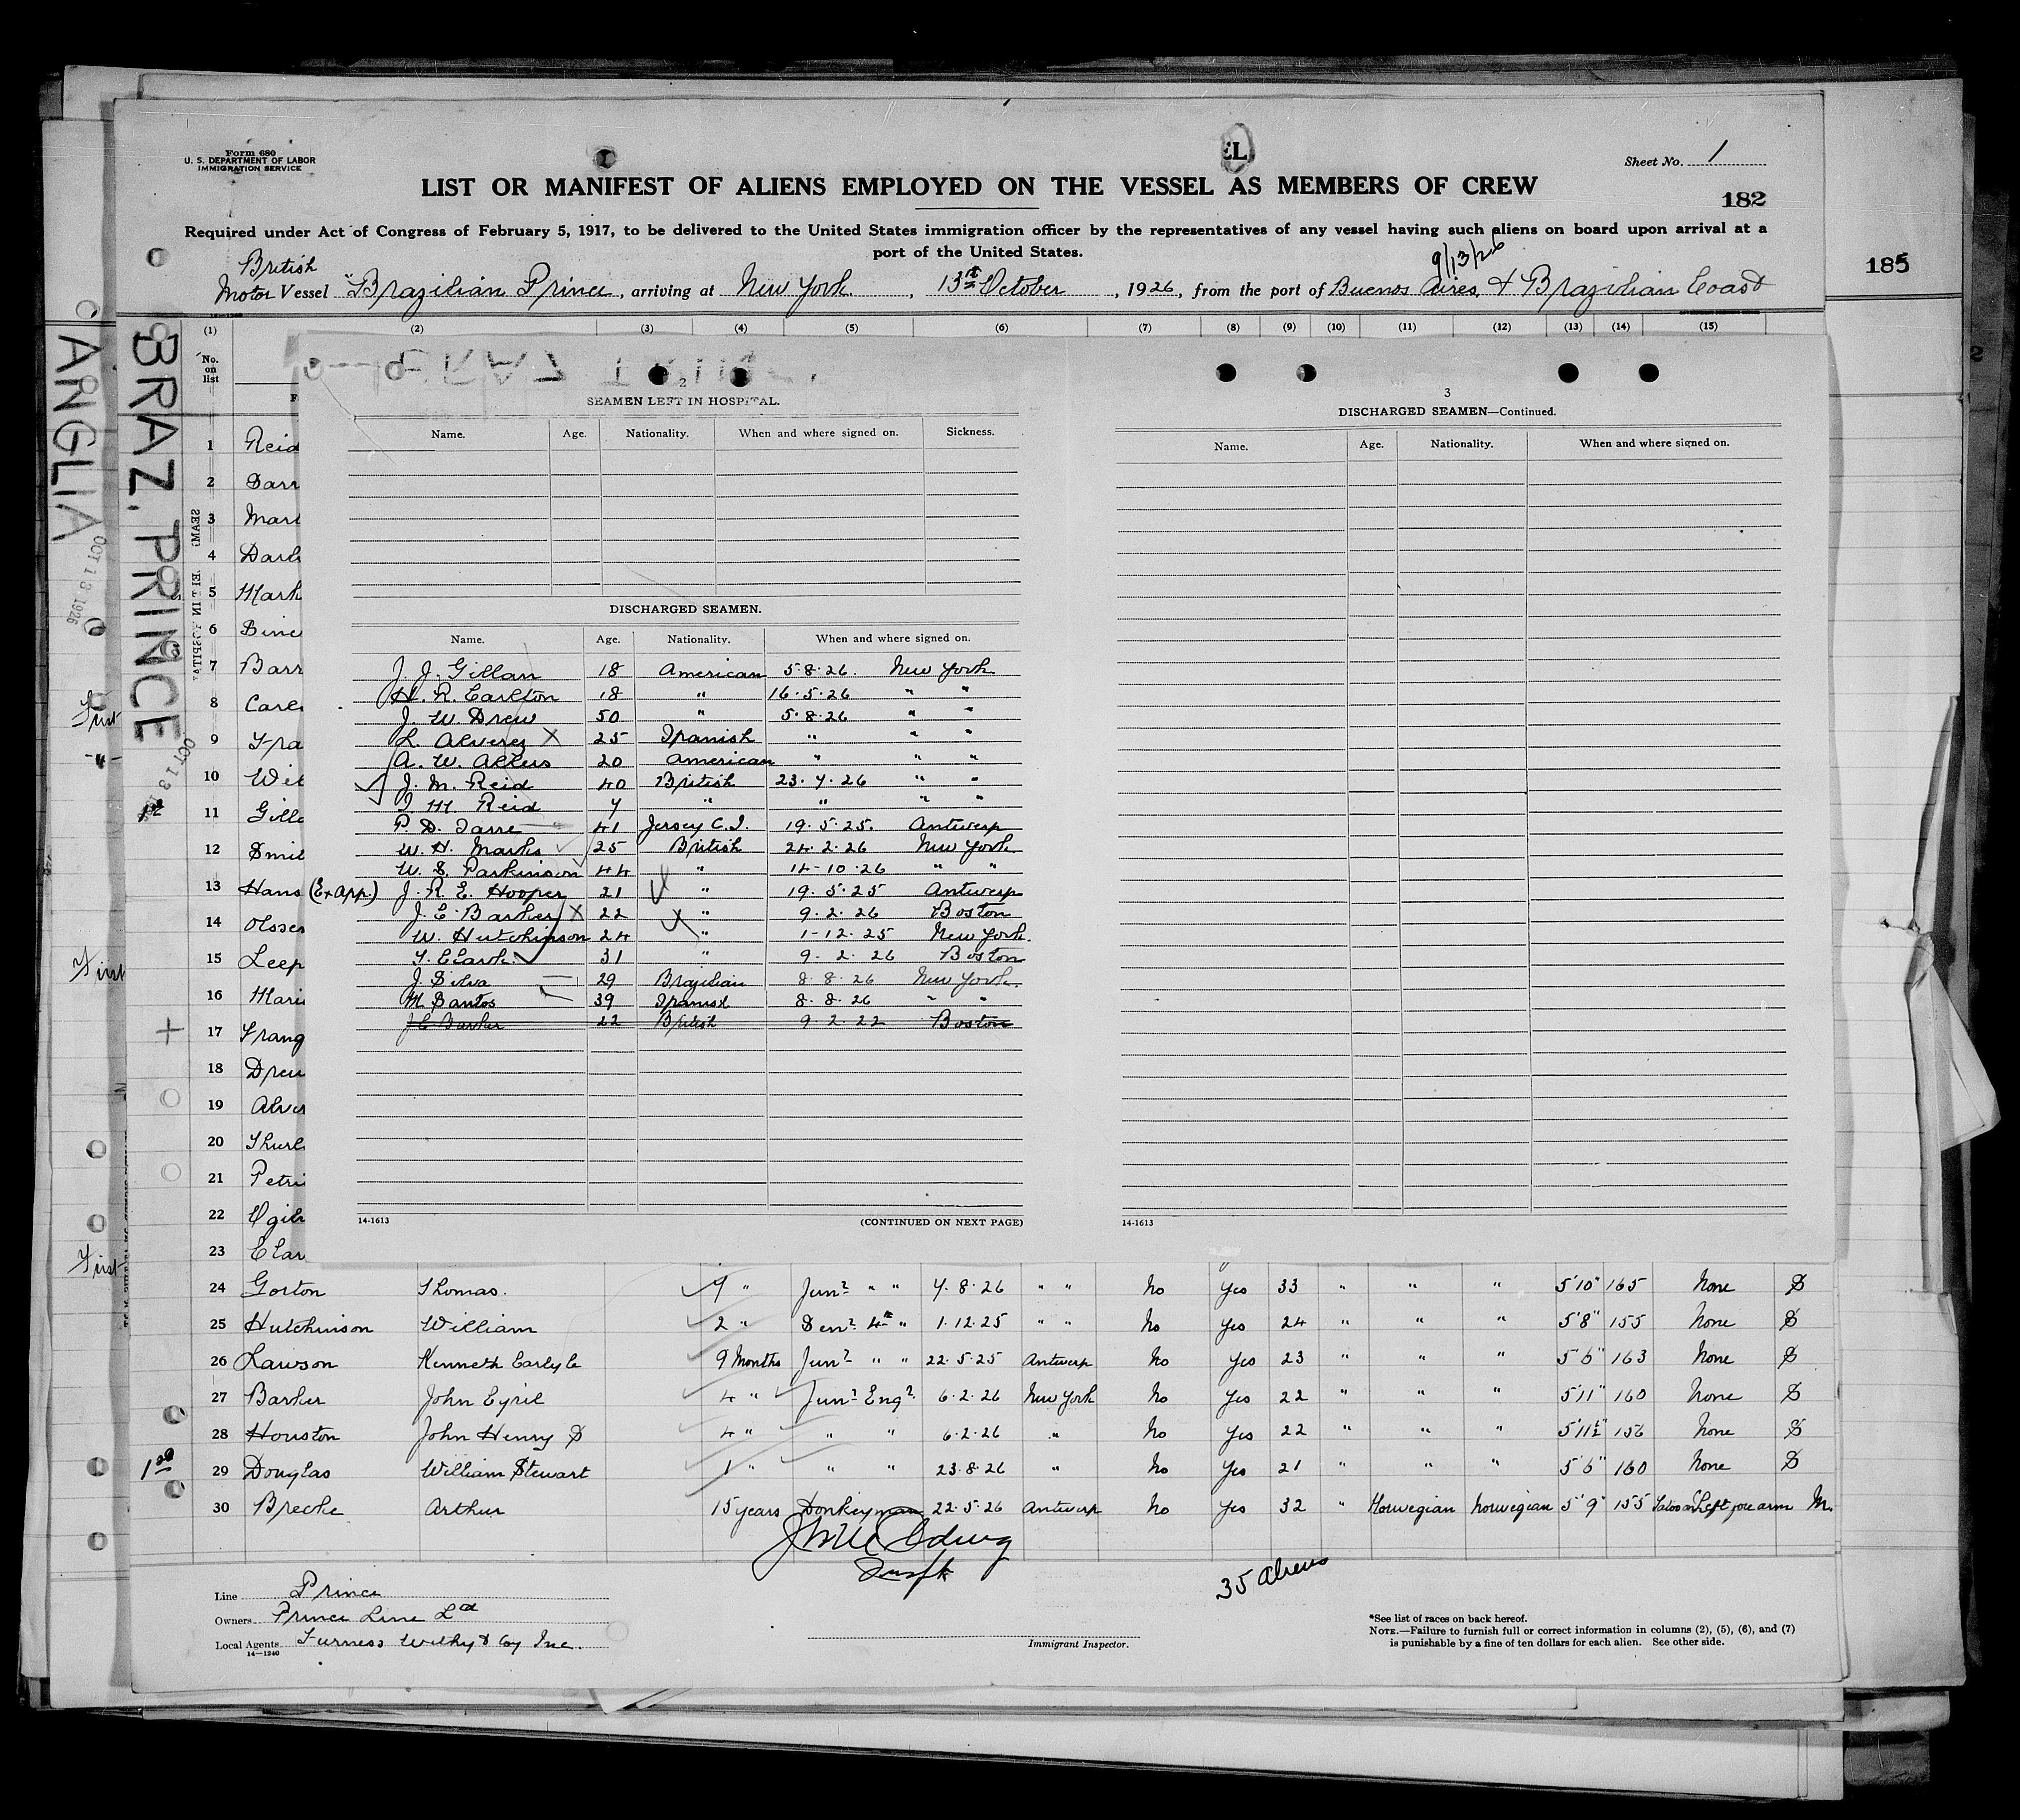 Form 680
U. S. DEPARTMENT OF LABOR
IMMIGRATION SERVICE
EL
Sheet No. 1
LIST OR MANIFEST OF ALIENS EMPLOYED ON THE VESSEL AS MEMBERS OF CREW
182
Required under Act of Congress of February 5, 1917, to be delivered to the United States immigration officer by the representatives of any vessel having such aliens on board upon arrival at a
port of the United States.
9/13/26
185
British
Motor Vessel "Brazilian Prince, arriving at New York, 13th October, 1926, from the port of Buenos Aires, & Brazilian Coast
(1) (2) (3) (4) (5) (6) (7) (8) (9) (10) (11) (12) (13) (14) (15)
No. on list
ANGLIA
OCT 13 1926
BRAZ. PRINCE
OCT 13
2
SEAMEN LEFT IN HOSPITAL.
Name. Age. Nationality. When and where signed on. Sickness.
DISCHARGED SEAMEN.
Name. Age. Nationality. When and where signed on.
J. J. Gillan 18 American 5·8·26. New York
H. R. Carlton 18 " 16·5·26 " "
J. W. Drew 50 " 5·8·26 " "
L. Alverez X 25 Spanish " " "
A. W. Akers 20 American " " "
J. M. Reid 40 British 23·7·26 " "
J. M. Reid 7 " " " "
P. D. Darre 41 Jersey C.I. 19·5·25. Antwerp
W. H. Marks 25 British 24·2·26 New York
W. S. Parkinson 44 " 14-10·26 " "
(Ex App.) J. R. E. Hooper 21 " 19·5·25 Antwerp
J. C. Barker X 22 " 9·2·26 Boston
W. Hutchinson 24 " 1-12·25 New York.
T. Clark. 31 " 9·2·26 Boston
J. Silva 29 Brazilian 8·8·26 New York.
M. Santos 39 Spanish 8·8·26 " "
J C Barker 22 British 9·2·22 Boston
14-1613
(CONTINUED ON NEXT PAGE)
3
DISCHARGED SEAMEN—Continued.
Name. Age. Nationality. When and where signed on.
14-1613
1 Reid
2 Darr
3 Mart
4
5 Mark
6
7 Barr
First 8 Carl
9 Fra
10 Wil
1st 11 Gill
12 Smit
13 Hans
14 Olsse
First 15 Leep
16 Mari
17 Frang
18 Drew
19 Alver
20 Thurl
21 Petri
22 Ogil
First 23 Clar
24 Gorton Thomas. 7 " Junr " " 7·8·26 " " No Yes 33 " " " 5'10" 165 None S
25 Hutchinson William 2 " Senr 4th " 1·12·25 " " No Yes 24 " " " 5'8" 155 None S
26 Lawson Kenneth Carlyle 9 Months Junr " " 22·5·25 Antwerp No Yes 23 " " " 5'6" 163 None S
27 Barker John Cyril 4 " Junr Engr. 6·2·26 New York No Yes 22 " " " 5'11" 160 None S
28 Houston John Henry S 4 " " " 6·2·26 " No Yes 22 " " " 5'11½" 156 None S
1st 29 Douglas William Stewart 1 " " " 23·8·26 " No Yes 21 " " " 5'6" 160 None S
30 Brecke Arthur 15 years Donkeyman 22·5·26 Antwerp No Yes 32 " Norwegian Norwegian 5'9" 155 Left fore arm M.
35 Aliens
Line Prince
Owners Prince Line Ltd
Local Agents Furness Withy & Coy Inc.
14—1240
Immigrant Inspector.
*See list of races on back hereof.
NOTE.—Failure to furnish full or correct information in columns (2), (5), (6), and (7)
is punishable by a fine of ten dollars for each alien. See other side.